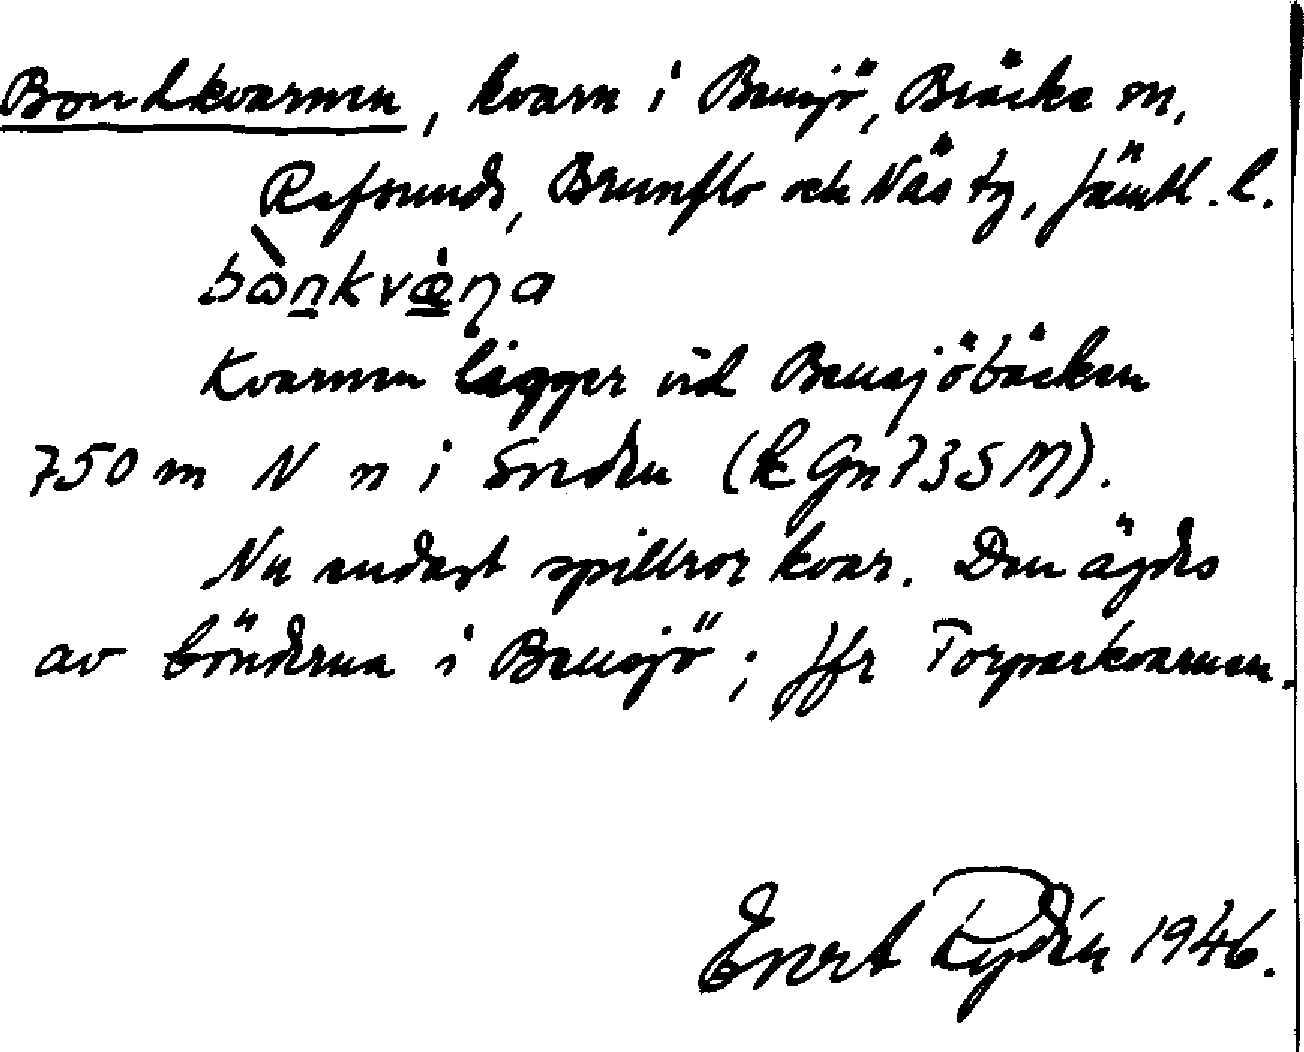 Bondkvarnen, kvarn i Bensjö, Bräcke sn,
Refsunds, Brunflo och Näs tg, Jämtl. l.
Kvarnen ligger vid Bensjöbäcken
750 m N n i Sveden (k Gn 735 M).
Nu endast spillror kvar. Den ägdes
av bönderna i Bensjö; jfr Torparkvarnen.
Evert Rydén 1946.